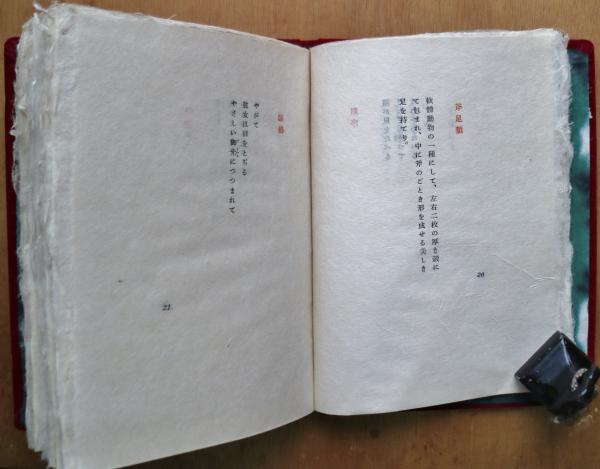 斧足類
軟體動物の一種にして、左右二枚の厚き殼に
て包まれ、中に斧のごとき形を成せる美しき
足を持てり。
20
やがて
彼女は目をとぢる
やさしい御手につつまれて
21